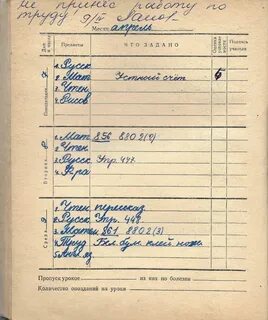 не принёс работу по
труду 9/IV
Месяц апрель
Предметы ЧТО ЗАДАНО Подпись учителя
Понедельник
1 Русск
2 Мат Устный счёт 5
3 Чтен
4 Рисов
Вторник
1 Мат 856 880 2(2)
2 Чтен
3 Русск Упр. 447.
4 Физ
Среда
1 Чтен пересказ
2 Русск Упр. 449
3 Матем 861 880 2(3)
4 Труд Бел. бум. клей ножн
5 Англ. яз
Пропуск уроков из них по болезни
Количество опозданий на уроки